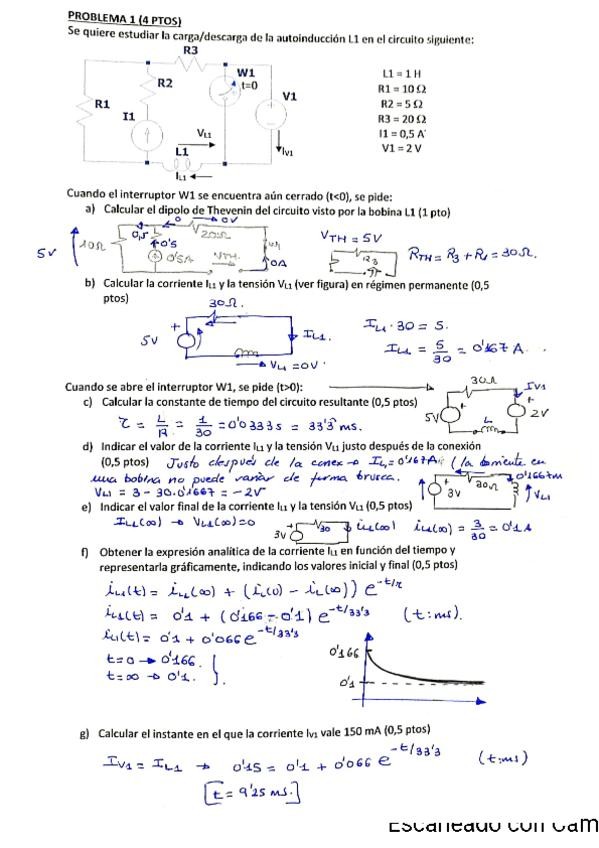 PROBLEMA 1 (4 PTOS)
Se quiere estudiar la carga/descarga de la autoinducción L1 en el circuito siguiente:
R3
R2
W1
t=0
V1
R1
I1
VL1
L1
IL1
IV1
L1 = 1 H
R1 = 10 Ω
R2 = 5 Ω
R3 = 20 Ω
I1 = 0,5 A
V1 = 2 V
Cuando el interruptor W1 se encuentra aún cerrado (t<0), se pide:
a) Calcular el dipolo de Thevenin del circuito visto por la bobina L1 (1 pto)
5V
10Ω
0,5
0'5
0'5A
0
0V
20Ω
VTH
0A
VTH = 5V
RTH = R3 + R1 = 30Ω.
b) Calcular la corriente IL1 y la tensión VL1 (ver figura) en régimen permanente (0,5
ptos)
30Ω.
5V
+
IL1.
VL1 = 0V
IL1 · 30 = 5.
IL1 = 5/30 = 0'167 A.
Cuando se abre el interruptor W1, se pide (t>0):
c) Calcular la constante de tiempo del circuito resultante (0,5 ptos)
τ = L/R = 1/30 = 0'0333s = 33'3 ms.
30Ω
IV1
5V
+
L
+
2V
d) Indicar el valor de la corriente IL1 y la tensión VL1 justo después de la conexión
(0,5 ptos) Justo después de la conex → IL1 = 0'167A (la corriente en
una bobina no puede variar de forma brusca.
VL1 = 3 - 30·0'1667 = -2V
+
3V
30Ω
VL1
e) Indicar el valor final de la corriente IL1 y la tensión VL1 (0,5 ptos)
IL1(∞) → VL1(∞)=0
3V
+
30
iL1(∞)
iL1(∞) = 3/30 = 0'1A
f) Obtener la expresión analítica de la corriente IL1 en función del tiempo y
representarla gráficamente, indicando los valores inicial y final (0,5 ptos)
iL1(t) = iL1(∞) + (iL(0) - iL(∞)) e^-t/τ
iL1(t) = 0'1 + (0'166 - 0'1) e^-t/33'3 (t:ms).
iL1(t) = 0'1 + 0'066 e^-t/33'3
t=0 → 0'166.
t=∞ → 0'1.
0'166
0'1
g) Calcular el instante en el que la corriente IV1 vale 150 mA (0,5 ptos)
IV1 = IL1 → 0'15 = 0'1 + 0'066 e^-t/33'3 (t:ms)
[t = 9'25 ms.]